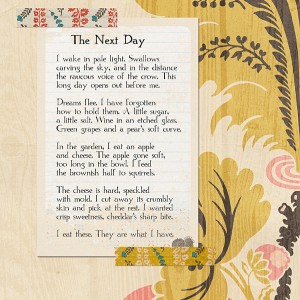 The Next Day
I wake in pale light. Swallows
carving the sky, and in the distance
the raucous voice of the crow. This
long day opens out before me.
Dreams flee. I have forgotten
how to hold them. A little sugar,
a little salt. Wine in an etched glass.
Green grapes and a pear's soft curve.
In the garden, I eat an apple
and cheese. The apple gone soft,
too long in the bowl. I feed
the brownish half to squirrels.
The cheese is hard, speckled
with mold. I cut away its crumbly
skin and pick at the rest. I wanted
crisp sweetness, cheddar's sharp bite.
I eat these. They are what I have.